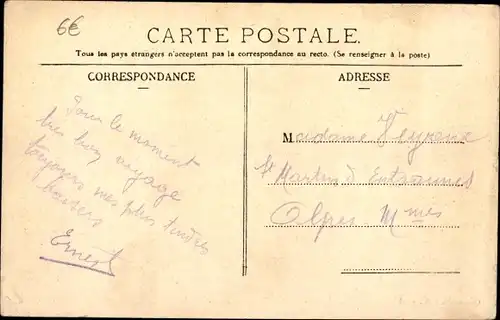 6€
CARTE POSTALE.
Tous les pays étrangers n'acceptent pas la correspondance au recto. (Se renseigner à la poste)
CORRESPONDANCE
ADRESSE
Pour le moment
bien bon voyage
toujours mes plus tendres
baisers
Ernest
Madame
St Martin d'Entraunes
Alpes Mmes